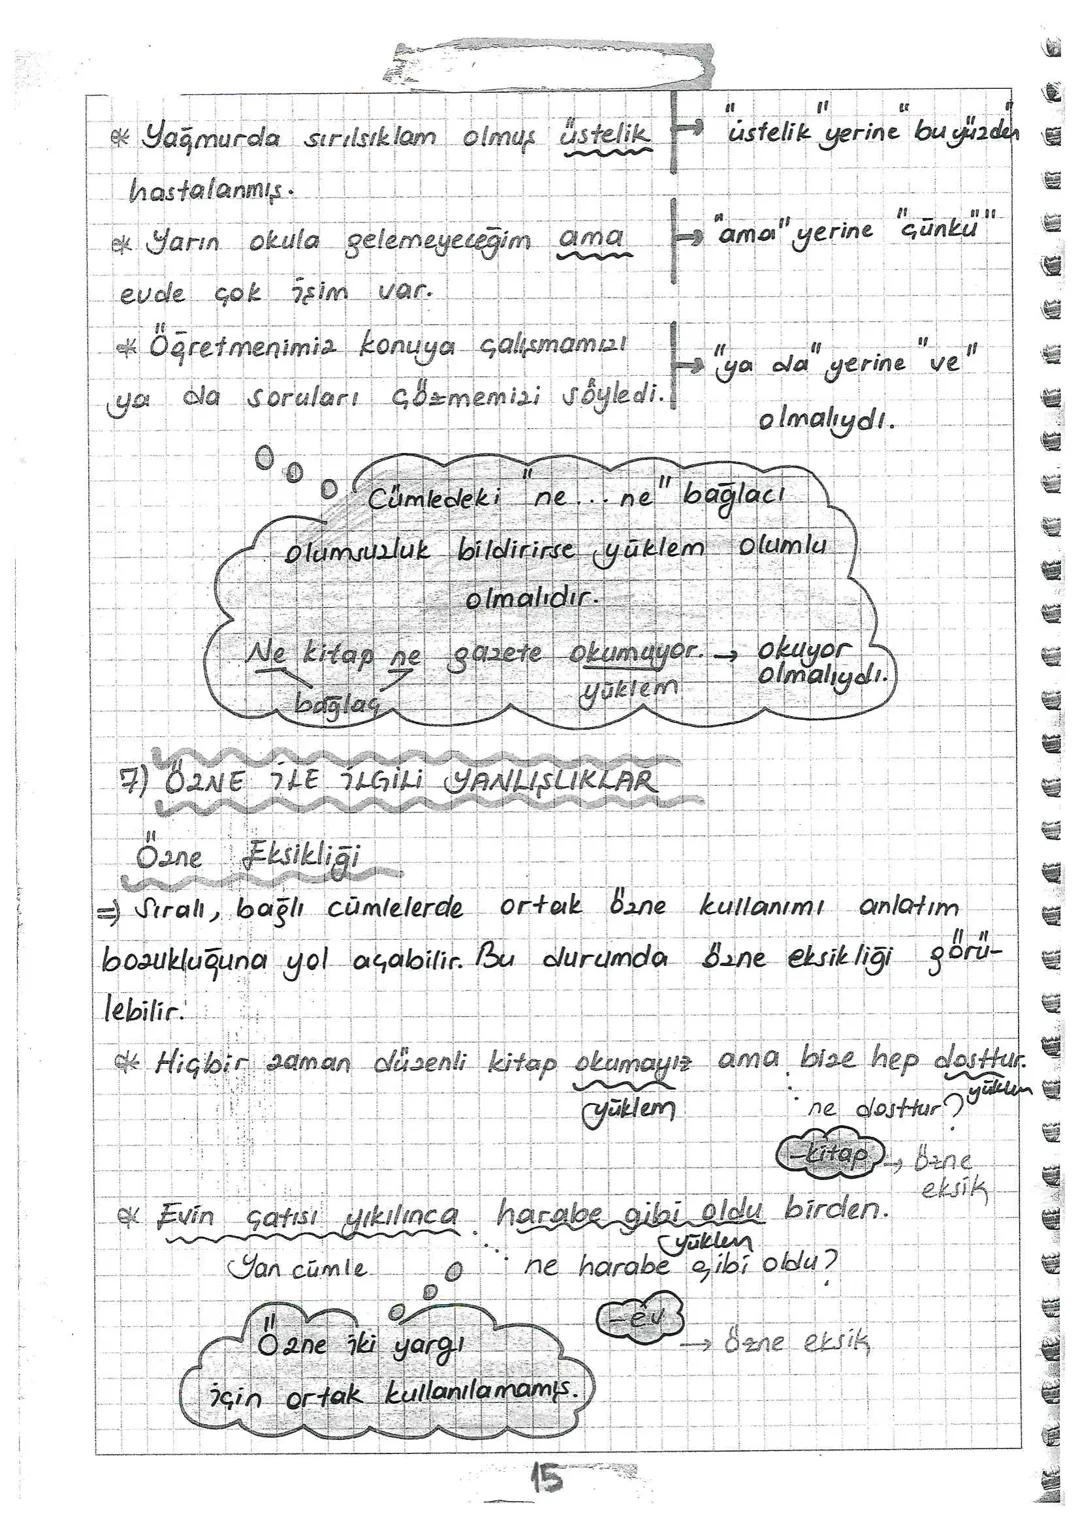 * Yağmurda sırılsıklam olmuş üstelik → "üstelik" yerine "bu yüzden"
hastalanmış.
* Yarın okula gelemeyeceğim ama → "ama" yerine "çünkü"
evde çok işim var.
* Öğretmenimiz konuya çalışmamızı
ya da soruları çözmemizi söyledi. → "ya da" yerine "ve"
olmalıydı.
Cümledeki "ne... ne" bağlacı
olumsuzluk bildirirse yüklem olumlu
olmalıdır.
Ne kitap ne gazete okumuyor. → okuyor
olmalıydı.
bağlaç yüklem
7) ÖZNE İLE İLGİLİ YANLIŞLIKLAR
Özne Eksikliği
⇒ Sıralı, bağlı cümlelerde ortak özne kullanımı anlatım
bozukluğuna yol açabilir. Bu durumda özne eksikliği görü-
lebilir.
* Hiçbir zaman düzenli kitap okumayız ama bize hep dosttur.
yüklem ne dosttur? yüklem
-kitap → özne
eksik
* Evin çatısı yıkılınca harabe gibi oldu birden.
yüklem
Yan cümle ne harabe gibi oldu?
-ev
→ özne eksik
Özne iki yargı
için ortak kullanılamamış.
15